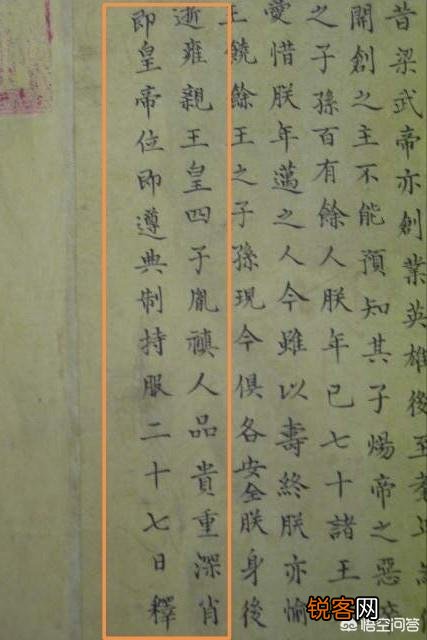 昔梁武帝亦創業英雄後至耄
開創之主不能預知其子煬帝之惡
之子孫百有餘人朕年已七十諸王
愛惜朕年邁之人今雖以壽終朕亦愉
王饒餘王之子孫現今俱各安全朕身後
逝雍親王皇四子胤禛人品貴重深肖
即皇帝位即遵典制持服二十七日釋
锐客网
悟空问答